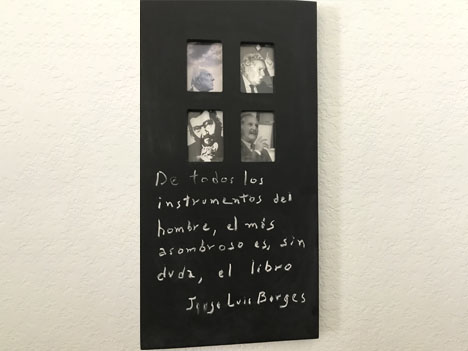 De todos los
instrumentos del
hombre, el más
asombroso es, sin
duda, el libro
Jorge Luis Borges